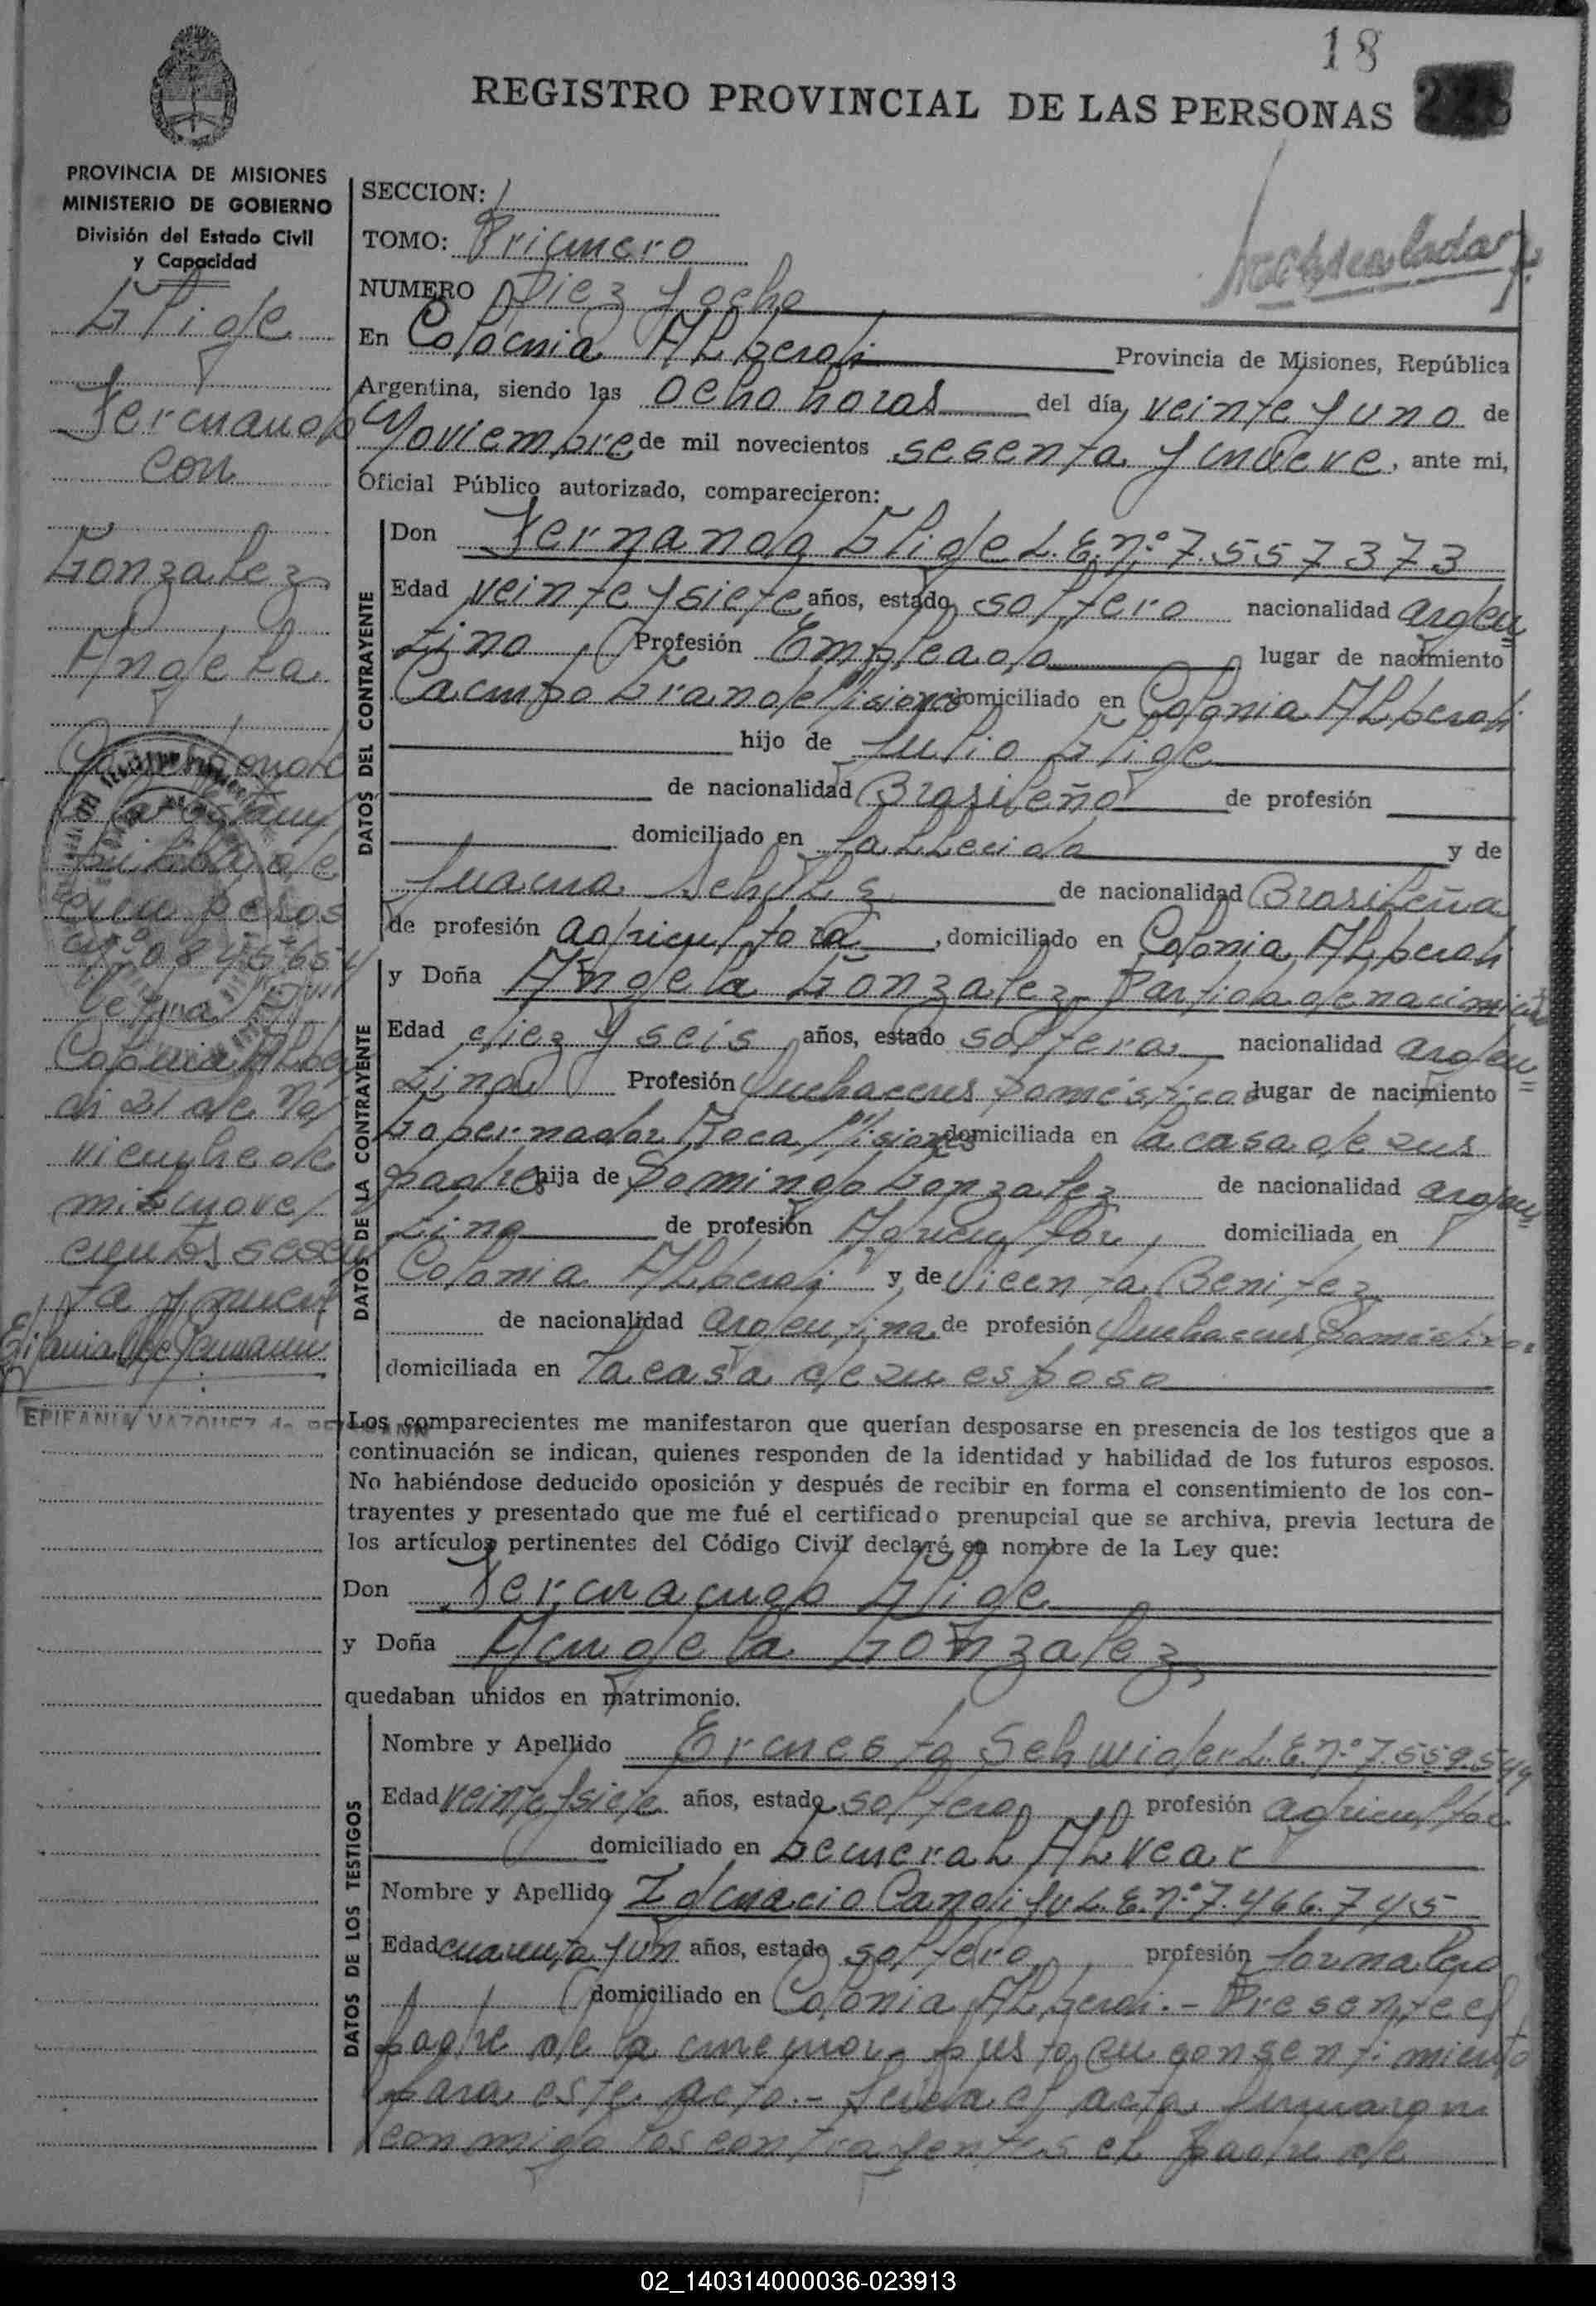 18
REGISTRO PROVINCIAL DE LAS PERSONAS
PROVINCIA DE MISIONES
MINISTERIO DE GOBIERNO
División del Estado Civil
y Capacidad
Glige
Fernando
con
Gonzalez
Angela
cien pesos
Colonia Alber
di 21 de No
viembre de
mil nove
cientos sesen
ta y nueve
EPIFANIA VAZQUEZ de
SECCION: 1
TOMO: Primero
NUMERO Diez y ocho
En Colonia Alberdi Provincia de Misiones, República
Argentina, siendo las ocho horas del día veinte y uno de
Noviembre de mil novecientos sesenta y nueve, ante mi,
Oficial Público autorizado, comparecieron:
DATOS DEL CONTRAYENTE
Don Fernando Glige L.E.Nº 7.557373
Edad veinte y siete años, estado soltero nacionalidad argen
tino Profesión Empleado lugar de nacimiento
Campo Grande Misiones domiciliado en Colonia Alberdi
hijo de Julio Glige
de nacionalidad Brasileño de profesión
domiciliado en fallecido y de
Juana Schulz de nacionalidad Brasileña
de profesión agricultora, domiciliado en Colonia Alberdi
DATOS DE LA CONTRAYENTE
y Doña Angela Gonzalez Partida de nacimiento
Edad diez y seis años, estado soltera nacionalidad argen
tina Profesión Quehaceres Domésticos lugar de nacimiento
Gobernador Roca Misiones domiciliada en la casa de sus
padres hija de Domingo Gonzalez de nacionalidad argen
tino de profesión Agricultor, domiciliada en
Colonia Alberdi y de Vicenta Benitez
de nacionalidad argentina de profesión Quehaceres Domésticos
domiciliada en la casa de su esposo
Los comparecientes me manifestaron que querían desposarse en presencia de los testigos que a
continuación se indican, quienes responden de la identidad y habilidad de los futuros esposos.
No habiéndose deducido oposición y después de recibir en forma el consentimiento de los con-
trayentes y presentado que me fué el certificado prenupcial que se archiva, previa lectura de
los artículos pertinentes del Código Civil declaré, en nombre de la Ley que:
Don Fernando Glige
y Doña Angela Gonzalez
quedaban unidos en matrimonio.
DATOS DE LOS TESTIGOS
Nombre y Apellido Ernesto Schnider L.E.Nº 7.559.544
Edad veinte y siete años, estado soltero profesión agricultor
domiciliado en General Alvear
Nombre y Apellido Ignacio Candi L.E.Nº 7.466.745
Edad cuarenta y un años, estado soltero profesión Jornalero
domiciliado en Colonia Alberdi.- Presente el
padre de la menor, presta su consentimiento
para este acto.- Leida el acta firmaron
conmigo los contrayentes el padre de
02_140314000036-023913